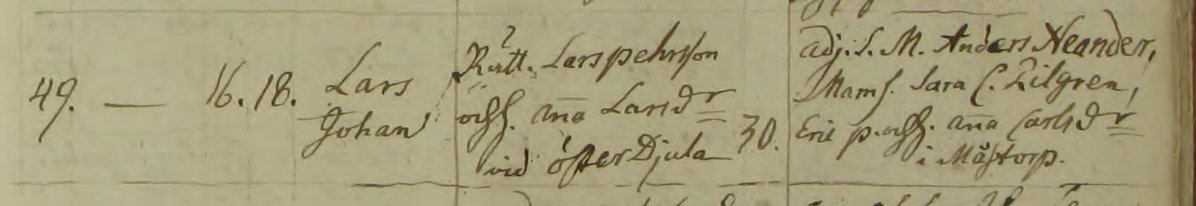 49. — 16. 18. Lars
Johan
Rätt. Lars pehrsson
och h. Ana Larsdr
vid öster Djula 30.
adj. S. M. Anders Neander,
Mams. Sara C. Lilgren,
Eric p. och h. Ana Carlsdr
i Mästorp.